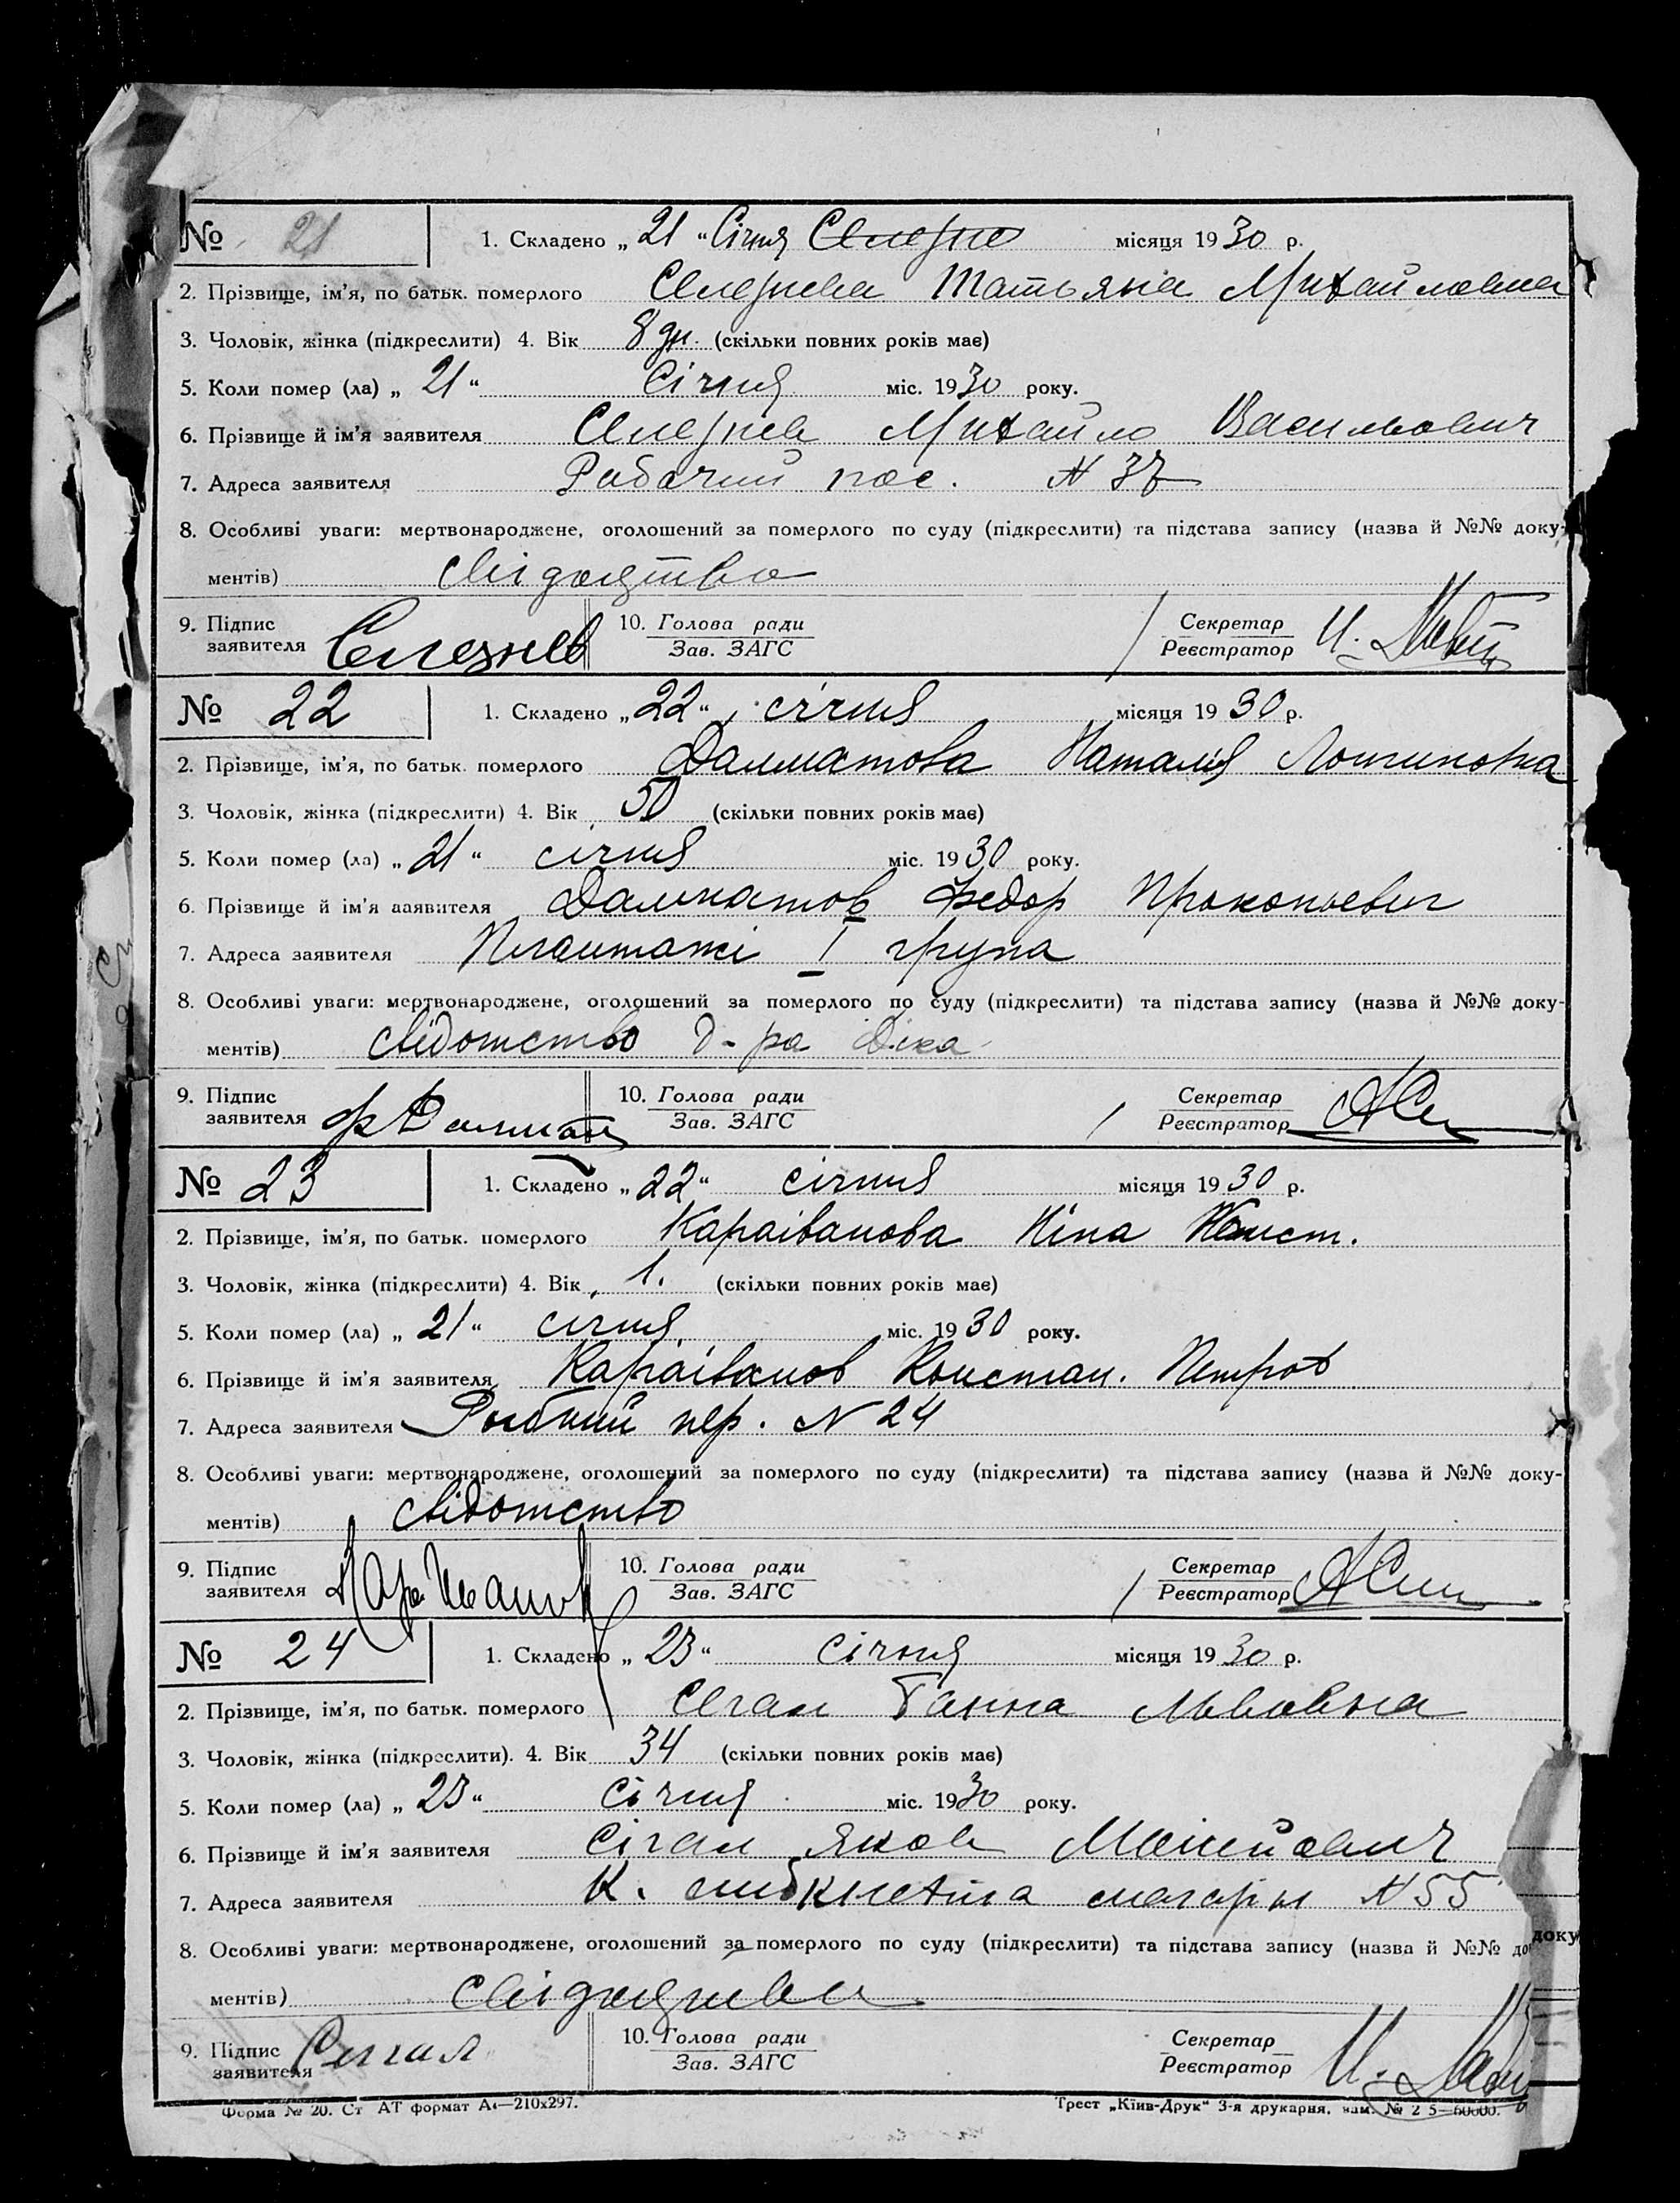 № 21 1. Складено „ 21 “ Січня місяця 1930 р.
2. Прізвище, ім'я, по батьк. померлого Селезнева Татьяна Михайловна
3. Чоловік, жінка (підкреслити) 4. Вік 8 дн. (скільки повних років має)
5. Коли помер (ла) „ 21 “ Січня міс. 1930 року.
6. Прізвище й ім'я заявителя Селезнев Михайло Васильович
7. Адреса заявителя Рабочий пос. N 37
8. Особливі уваги: мертвонароджене, оголошений за померлого по суду (підкреслити) та підстава запису (назва й №№ доку-
ментів)
9. Підпис 10. Голова ради Секретар
заявителя Селезнев Зав. ЗАГС Реєстратор
№ 22 1. Складено „ 22 “ січня місяця 1930 р.
2. Прізвище, ім'я, по батьк. померлого Далматова Наталія Логиновна
3. Чоловік, жінка (підкреслити) 4. Вік 50 (скільки повних років має)
5. Коли помер (ла) „ 21 “ січня міс. 1930 року.
6. Прізвище й ім'я заявителя Далматов Федор Прокопьевич
7. Адреса заявителя Плантажі I група
8. Особливі уваги: мертвонароджене, оголошений за померлого по суду (підкреслити) та підстава запису (назва й №№ доку-
ментів) свідотство д-ра Діка
9. Підпис 10. Голова ради Секретар
заявителя Зав. ЗАГС Реєстратор
№ 23 1. Складено „ 22 “ січня місяця 1930 р.
2. Прізвище, ім'я, по батьк. померлого Караіванова Ніна Конст.
3. Чоловік, жінка (підкреслити) 4. Вік 1. (скільки повних років має)
5. Коли помер (ла) „ 21 “ січня міс. 1930 року.
6. Прізвище й ім'я заявителя Караіванов Констан. Петров
7. Адреса заявителя Рыбний пер. N 24
8. Особливі уваги: мертвонароджене, оголошений за померлого по суду (підкреслити) та підстава запису (назва й №№ доку-
ментів) свідотство
9. Підпис 10. Голова ради Секретар
заявителя КараИванов Зав. ЗАГС Реєстратор
№ 24 1. Складено „ 23 “ Січня місяця 1930 р.
2. Прізвище, ім'я, по батьк. померлого Сегал Ганна Львовна
3. Чоловік, жінка (підкреслити). 4. Вік 34 (скільки повних років має)
5. Коли помер (ла) „ 23 “ Січня міс. 1930 року.
6. Прізвище й ім'я заявителя Сігал Яков
7. Адреса заявителя N 55
8. Особливі уваги: мертвонароджене, оголошений за померлого по суду (підкреслити) та підстава запису (назва й №№ до доку
ментів)
9. Підпис 10. Голова ради Секретар
заявителя Сегал Зав. ЗАГС Реєстратор
Форма № 20. Ст АТ формат А4—210х297. Трест „Київ-Друк“ 3-я друкарня,